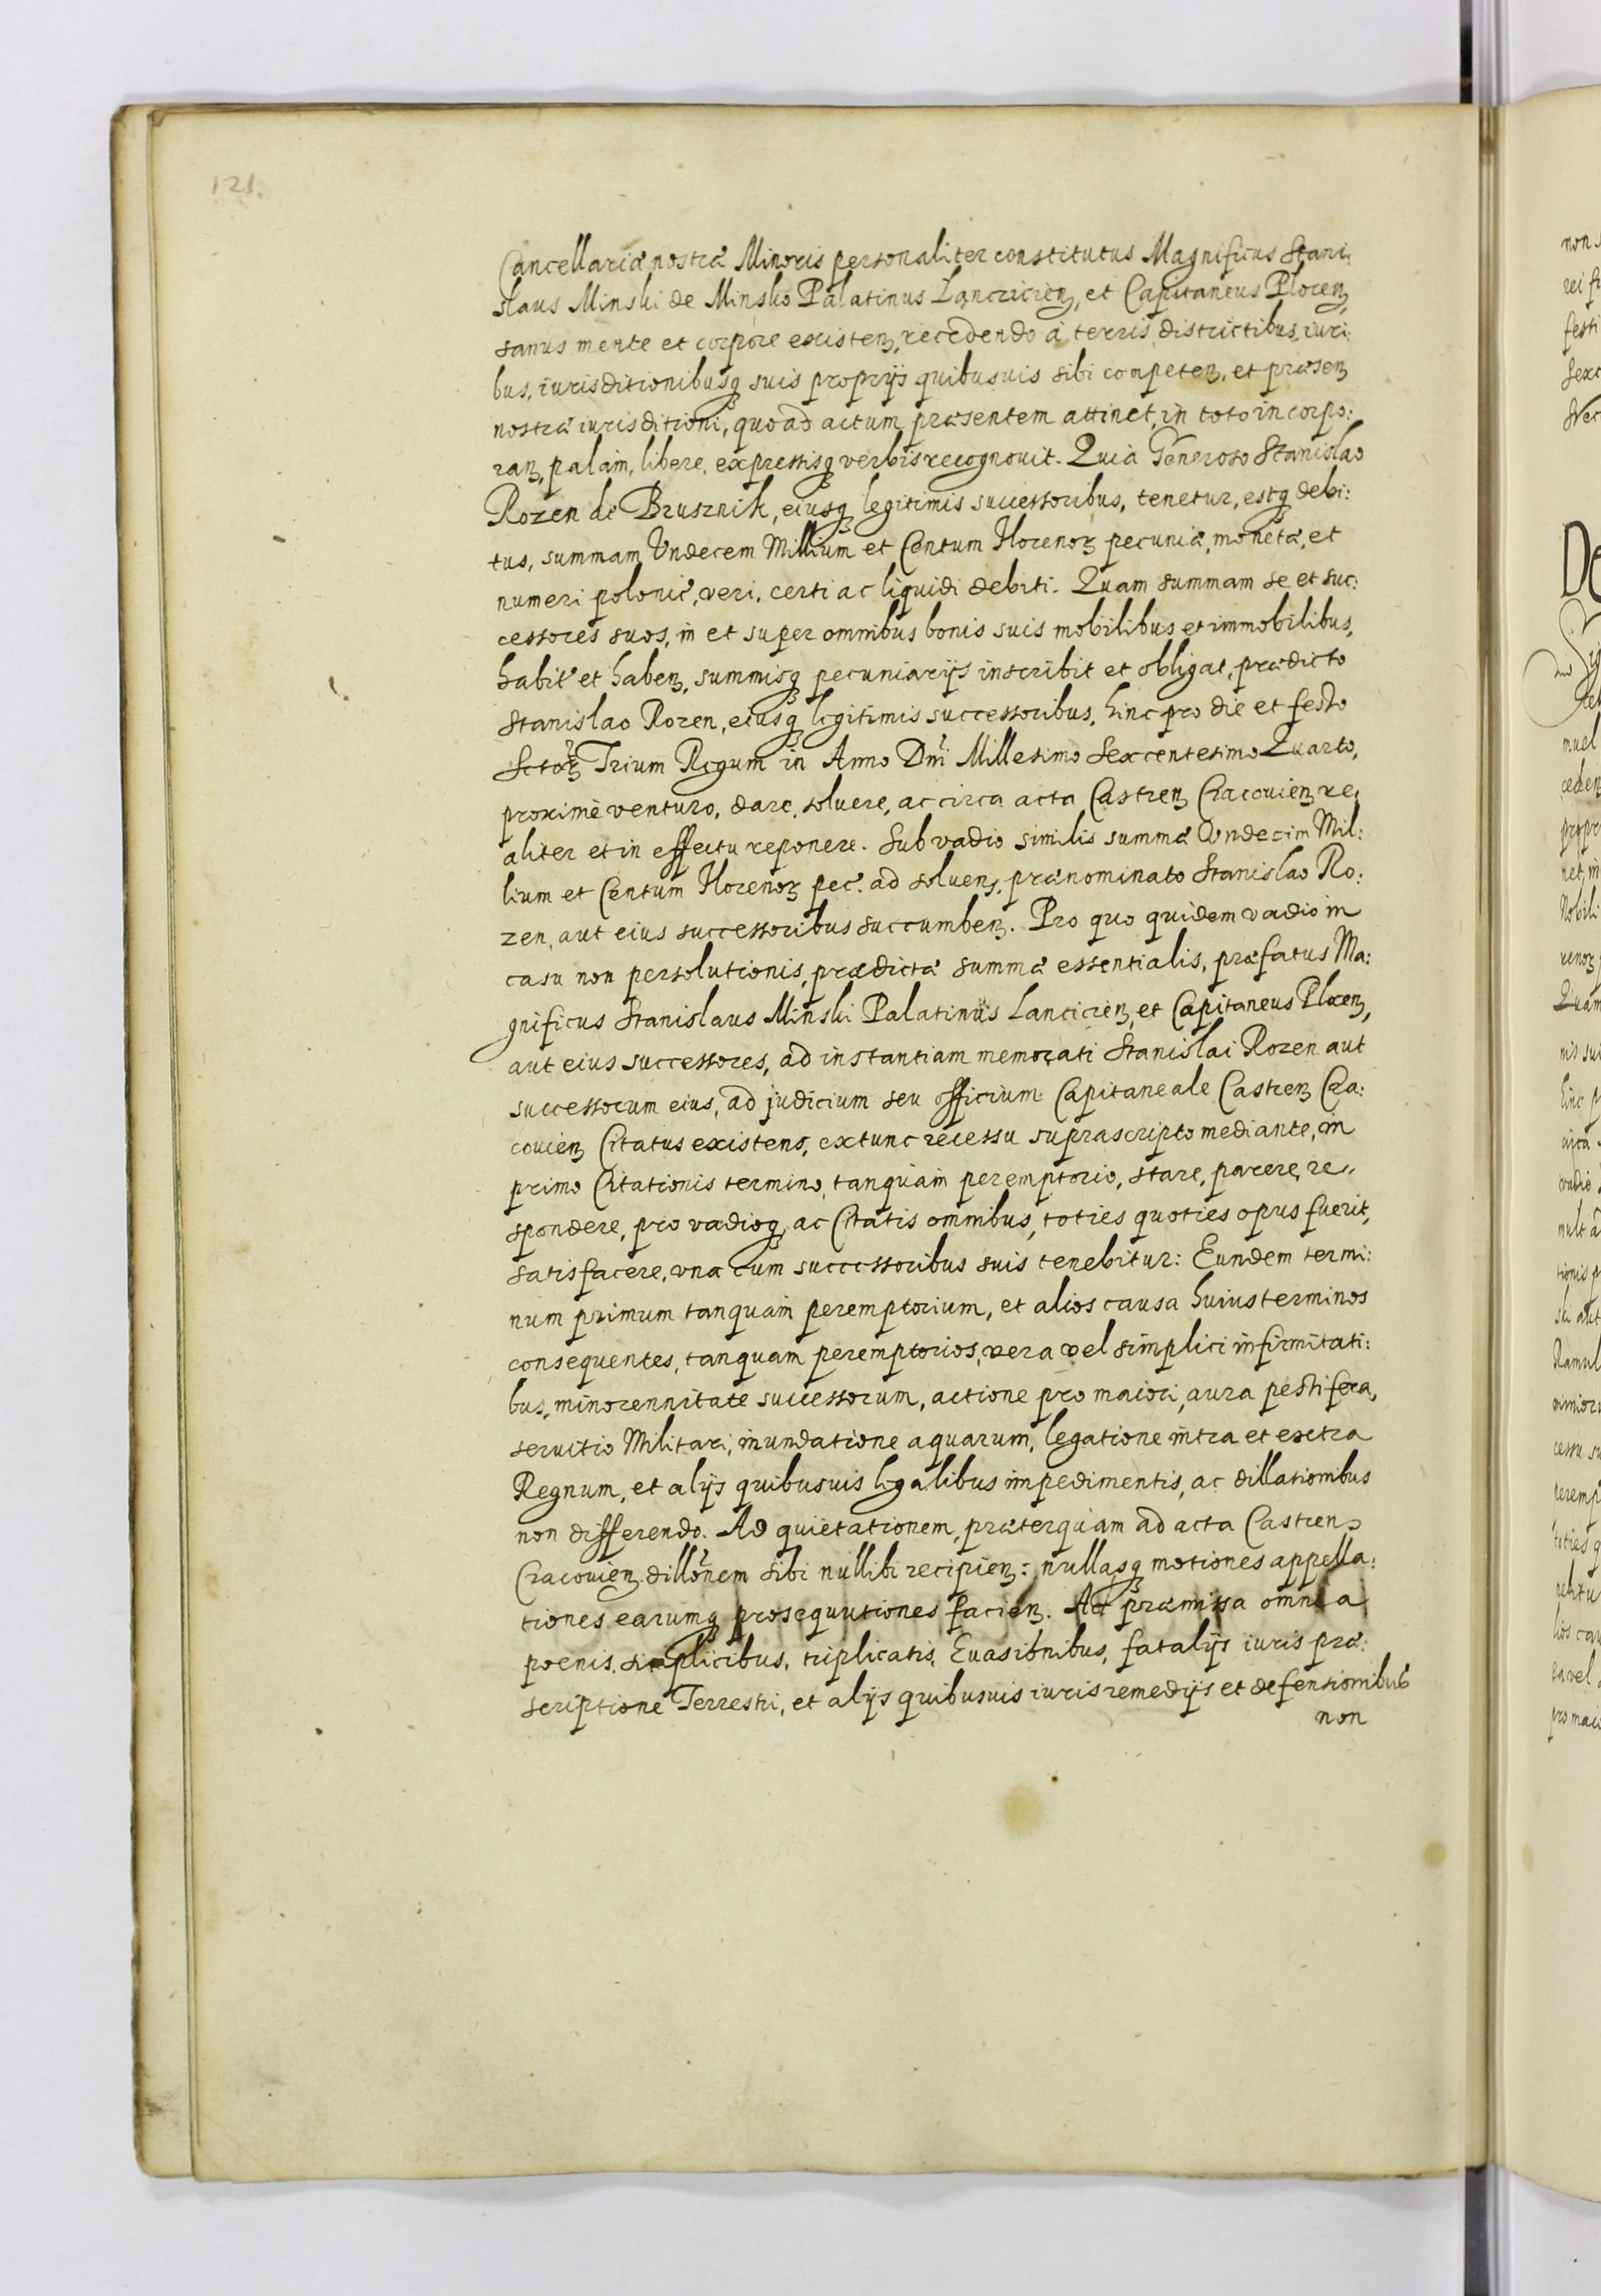 121.
Cancellariæ nostræ Minoris personaliter constitutus Magnificus Stani:
slaus Minski de Minsko Palatinus Lancicien, et Capitaneus Plocen,
sanus mente et corpore existen, recedendo à terris, districtibus, iuri:
bus, iurisditionibusq suis proprijs quibusuis sibi competen, et præsen
nostræ iurisditioni, quo ad actum præsentem attinet, in toto incorpo:
ran, palàm, libere, expressisq verbis recognouit. Quia Generoso Stanislao
Rozen de Brusznik, eiusq legitimis successoribus, tenetur, estq debi:
tus, summam Vndecem Millium et Centum Florenoꝝ pecuniæ, monetæ, et
numeri polonic, veri, certi ac liquidi debiti. Quam summam se et suc:
cessores suos, in et super omnibus bonis suis mobilibus et immobilibus,
habit et haben, summisq pecuniarijs inscribit et obligat, prædicto
Stanislao Rozen, eiusq legitimis successoribus, hinc pro die et festo
Sctoꝝ Trium Regum in Anno Dni Millesimo Sexcentesimo Quarto,
proximè venturo, dare, soluere, ac circa acta Castren Cracouien re,
aliter et in effectu reponere. Sub vadio similis summæ Vndecim Mil:
lium et Centum Florenoꝝ pec. ad soluen, prænominato Stanislao Ro:
zen, aut eius successoribus succumben. Pro quo quidem vadio in
casu non persolutionis, prædictæ summæ essentialis, præfatus Ma:
gnificus Stanislaus Minski Palatinus Lancicien, et Capitaneus Plocen,
aut eius successores, ad instantiam memorati Stanislai Rozen aut
successorum eius, ad judicium seu officium Capitaneale Castren Cra:
couien Citatus existens, extunc recessu suprascripto mediante, in
primo Citationis termino, tanquàm peremptorio, stare, parere, re,,
spondere, pro vadioq, ac Citatis omnibus, toties quoties opus fuerit,
satisfacere, vna cum successoribus suis tenebitur: Eundem termi:
num primum tanquàm peremptorium, et alios causa huius terminos
consequentes, tanquam peremptorios, vera vel simplici infirmitati:
bus, minorennitate successorum, actione pro maiori, aura pestifera,
seruitio Militari, inundatione aquarum, legatione intra et extra
Regnum, et alijs quibusuis legalibus impedimentis, ac dillationibus
non differendo. Ad quietationem, præterquàm ad acta Castren
Cracouien dillonem sibi nullibi recipien: nullasq motiones appella:
tiones earumq prosequutiones facien. Ac præmissa omnia
poenis, simplicibus, triplicatis, Euasionibus, fatalijs iuris præ:
scriptione Terrestri, et alijs quibusuis iuris remedijs et defensionibus
non